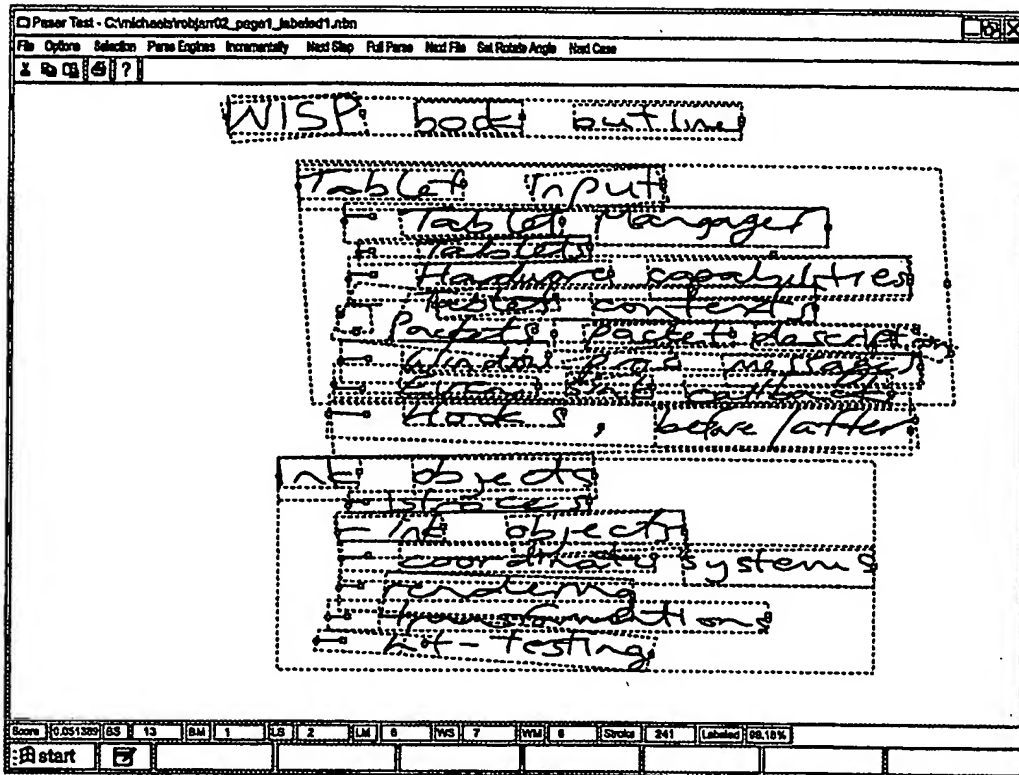 Paser Test - C:\michaels\robjarr02_page1_labeled1.nbn
File Options Selection Parse Engines Incrementally Next Step Full Parse Next File Set Rotate Angle Next Case
WISP book outline
Tablet Input
— Tablet Mangager
— Tablets
— Hardware capabilities
— Tablet contexts
— Packets packet description
— Window messages
— Event sink callback
— Hooks, before/after
Ink objects
— Strokes
— Ink objects
— coordinate systems
— rendering
— transformations
— hit-testing
Score 0.051389 BS 13 BM 1 LS 2 LM 6 WS 7 WM 6 Stroke 241 Labeled 98.18%
start